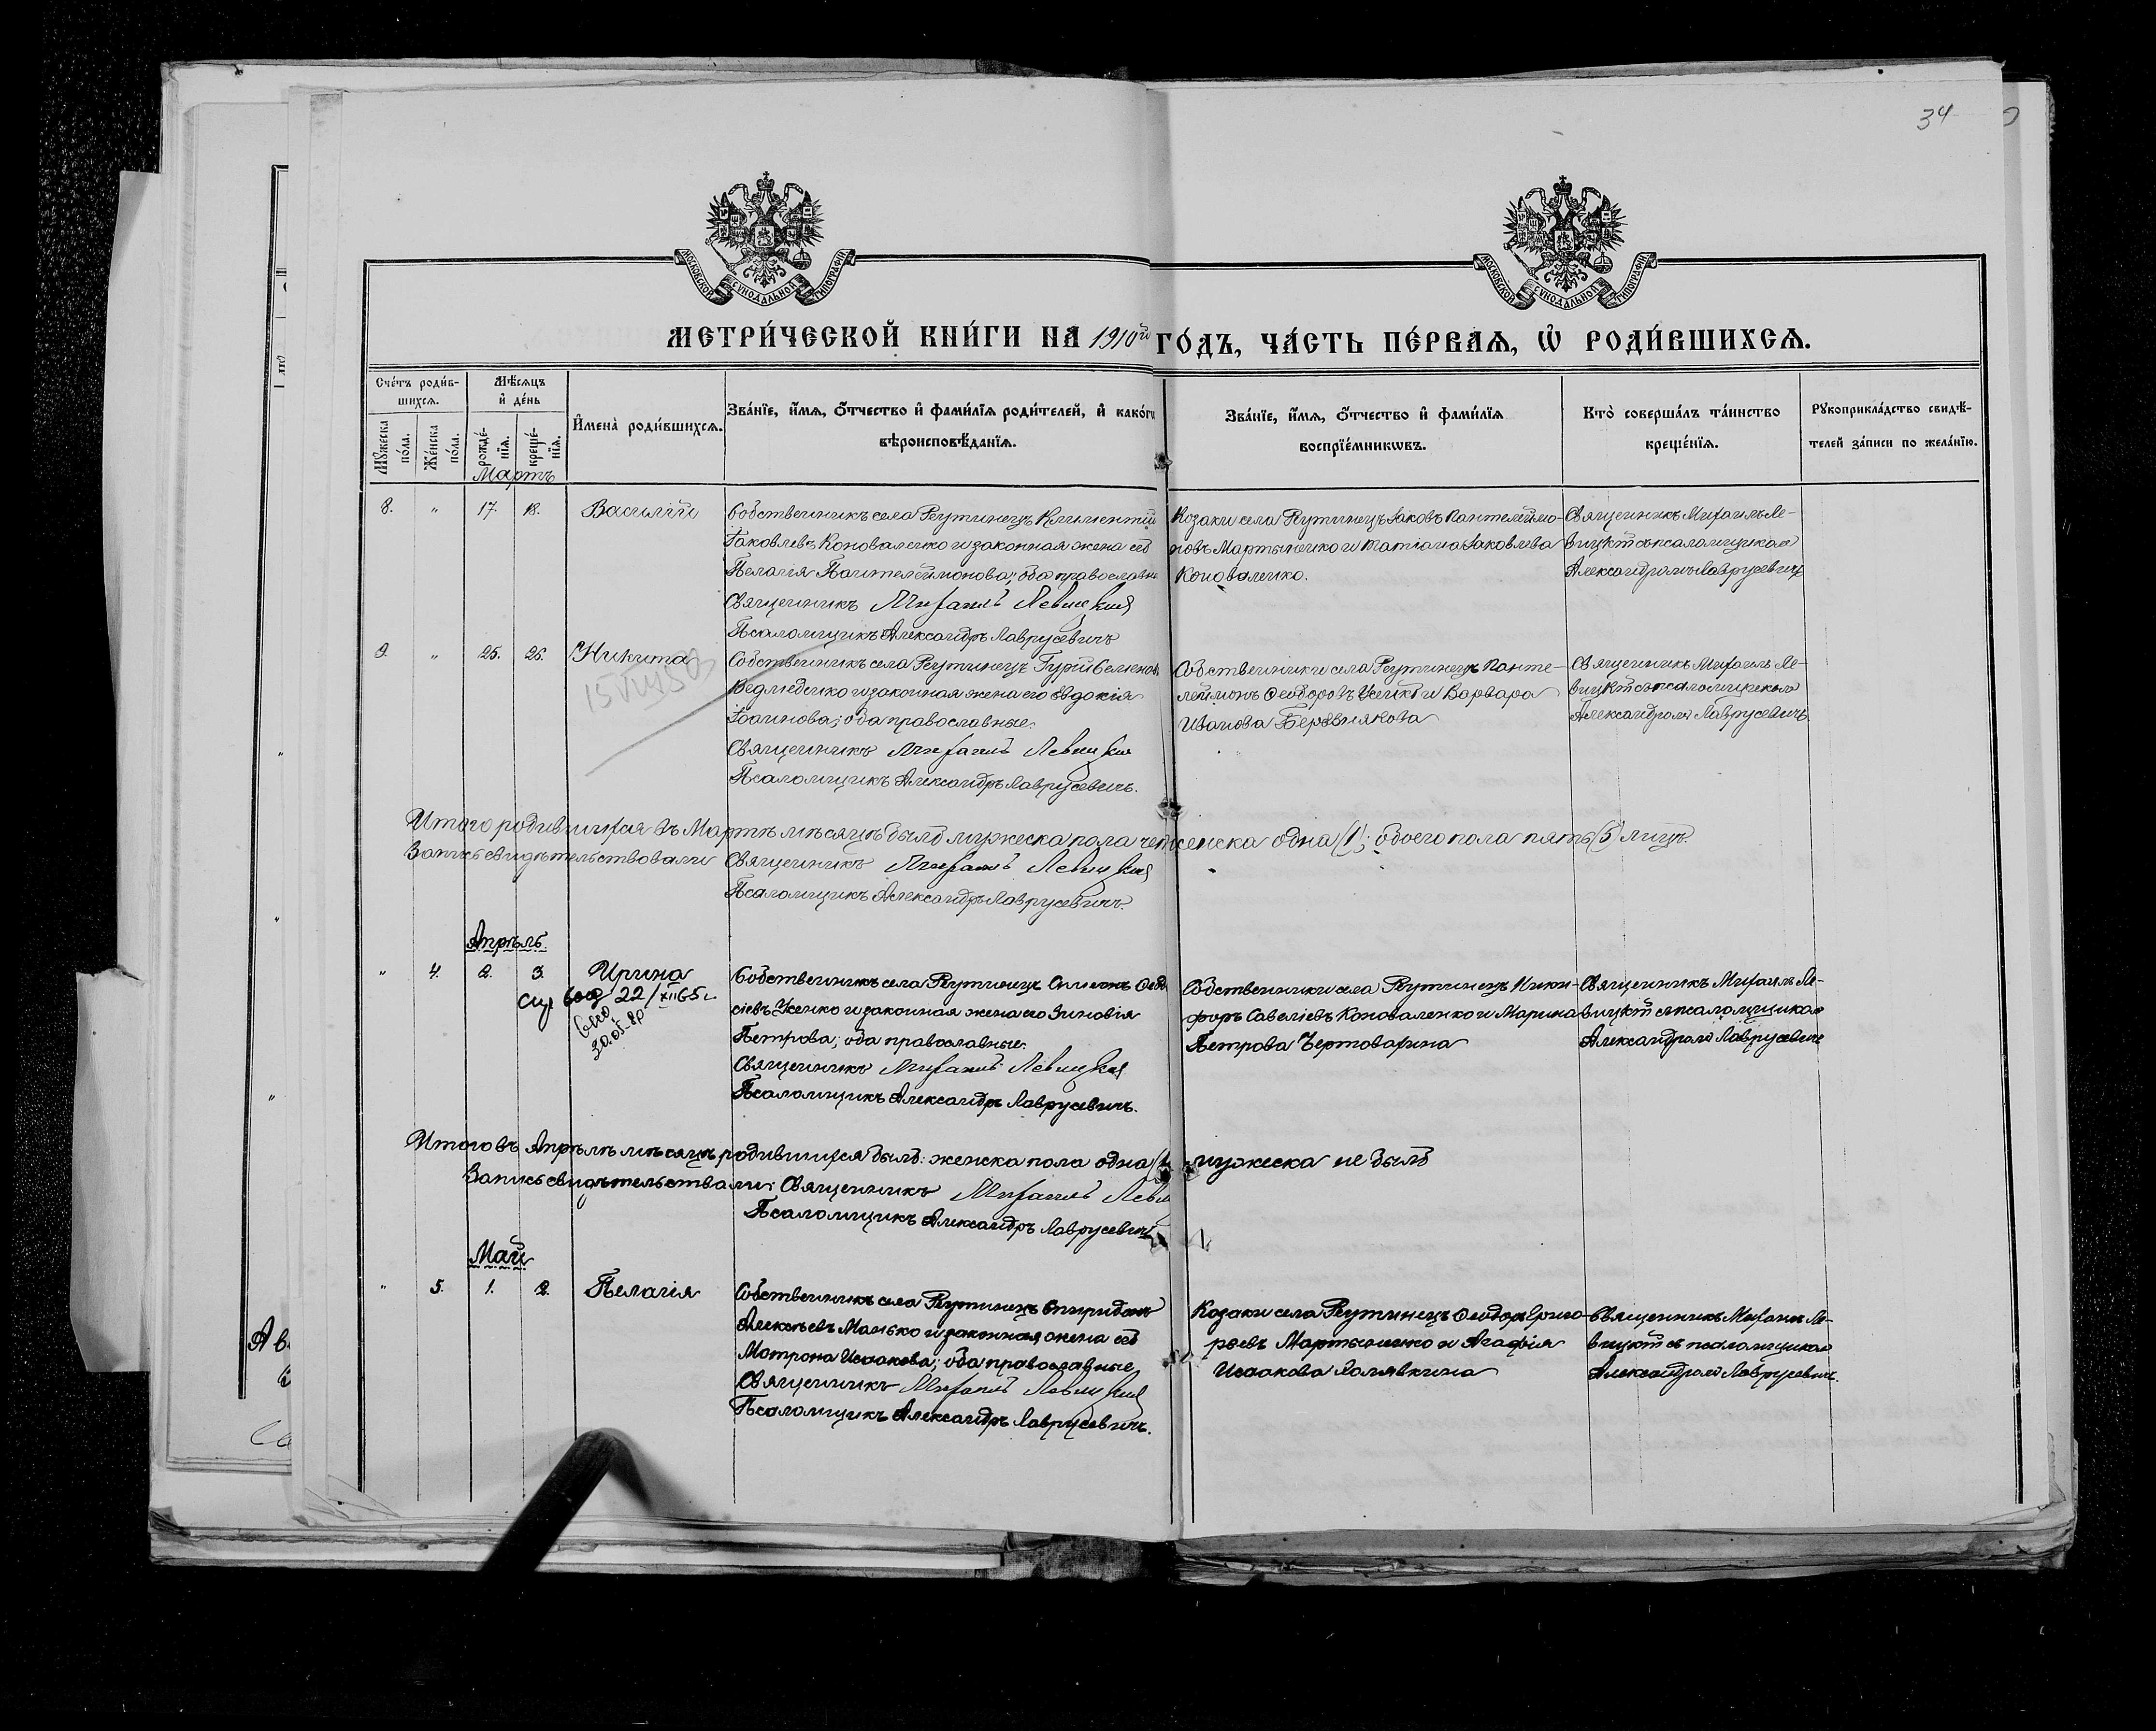 34
МОСКОВСКОЙ СѴНОДАЛЬНОЙ ТИПОГРАФІИ
МОСКОВСКОЙ СѴНОДАЛЬНОЙ ТИПОГРАФІИ
МЕТРИ́ЧЕСКОЙ КНИ́ГИ НА 1910й ГО́ДЪ, ЧА́СТЬ ПЕ́РВАѦ, Ѡ҆ РОДИ́ВШИХСѦ.
Сче́тъ роди́в-
шихсѧ.
Мꙋ́жеска по́ла.
Же́нска по́ла.
Мѣ́сѧцъ
и҆ де́нь
рожде́-
нїѧ.
креще́-
нїѧ.
И҆мена̀ роди́вшихсѧ.
Зва́нїе, и҆́мѧ, ѻ҆́тчество и҆ фами́лїѧ роди́телей, и҆ како́гѡ
вѣроисповѣ́данїѧ.
Зва́нїе, и҆́мѧ, ѻ҆́тчество и҆ фами́лїѧ
воспрїе́мникѡвъ.
Кто̀ соверша́лъ та́инство
креще́нїѧ.
Рꙋкоприкла́дство свидѣ́-
телей за́писи по жела́нїю.
Мартъ
8. " 17. 18. Василій
Собственникъ села Реутинецъ Климентій
Іаковлевъ Коноваленко и законная жена его
Пелагія Пантелеймонова; оба православн
Священникъ Михаилъ Левицкій
Псаломщикъ Александръ Лаврусевичъ
Козаки села Реутинецъ Іаковъ Пантелеймо-
новъ Мартыненко и Татіана Іаковлева
Коноваленко.
Священникъ Михаилъ Ле-
вицкій съ псаломщикомъ
Александромъ Лаврусевичъ
9. " 25. 26. Никита
Собственникъ села Реутинецъ Гурій Семенов
Ведмеденко и законная жена его Евдокія
Іоаннова; оба православные.
Священникъ Михаилъ Левицкій
Псаломщикъ Александръ Лаврусевичъ.
Собственники села Реутинецъ Панте-
леймонъ Ѳеодоровъ Усенко и Варвара
Иванова Березнякова
Священникъ Михаилъ Ле-
вицкій съ псаломщикомъ
Александромъ Лаврусевичъ
Итого родившихся въ Мартѣ мѣсяцѣ было мужеска пола чет женска одна (1); обоего пола пять (5) лицъ.
Запись свидѣтельствовали Священникъ Михаилъ Левицкій
Псаломщикъ Александръ Лаврусевичъ.
Апрѣль
" 4. 2. 3. Ирина
22/XII65г
Собственникъ села Реутинецъ Симеонъ Ѳеодо
сіевъ Усенко и законная жена его Зиновія
Петрова; оба православные.
Священникъ Михаилъ Левицкій
Псаломщикъ Александръ Лаврусевичъ.
Собственники села Реутинецъ Ники-
форъ Савеліевъ Коноваленко и Марина
Петрова Чертоварина
Священникъ Михаилъ Ле-
вицкій съ псаломщикомъ
Александромъ Лаврусевичъ
Итого въ Апрѣлѣ мѣсяцѣ родившихся было: женска пола одна (1 мужеска не было
Запись свидѣтельствали: Священникъ Михаилъ Леви
Псаломщикъ Александръ Лаврусевичъ
Май
" 5. 1. 2. Пелагія
Собственникъ села Реутинецъ Спиридонъ
Алексѣевъ Манько и законная жена его
Матрона Исаакова; оба православные
Священникъ Михаилъ Левицкій
Псаломщикъ Александръ Лаврусевичъ.
Козаки села Реутинецъ Ѳеодоръ Григо-
рьевъ Мартыненко и Агафія
Исаакова Холявкина
Священникъ Михаилъ Ле-
вицкій съ псаломщикомъ
Александромъ Лаврусевич.